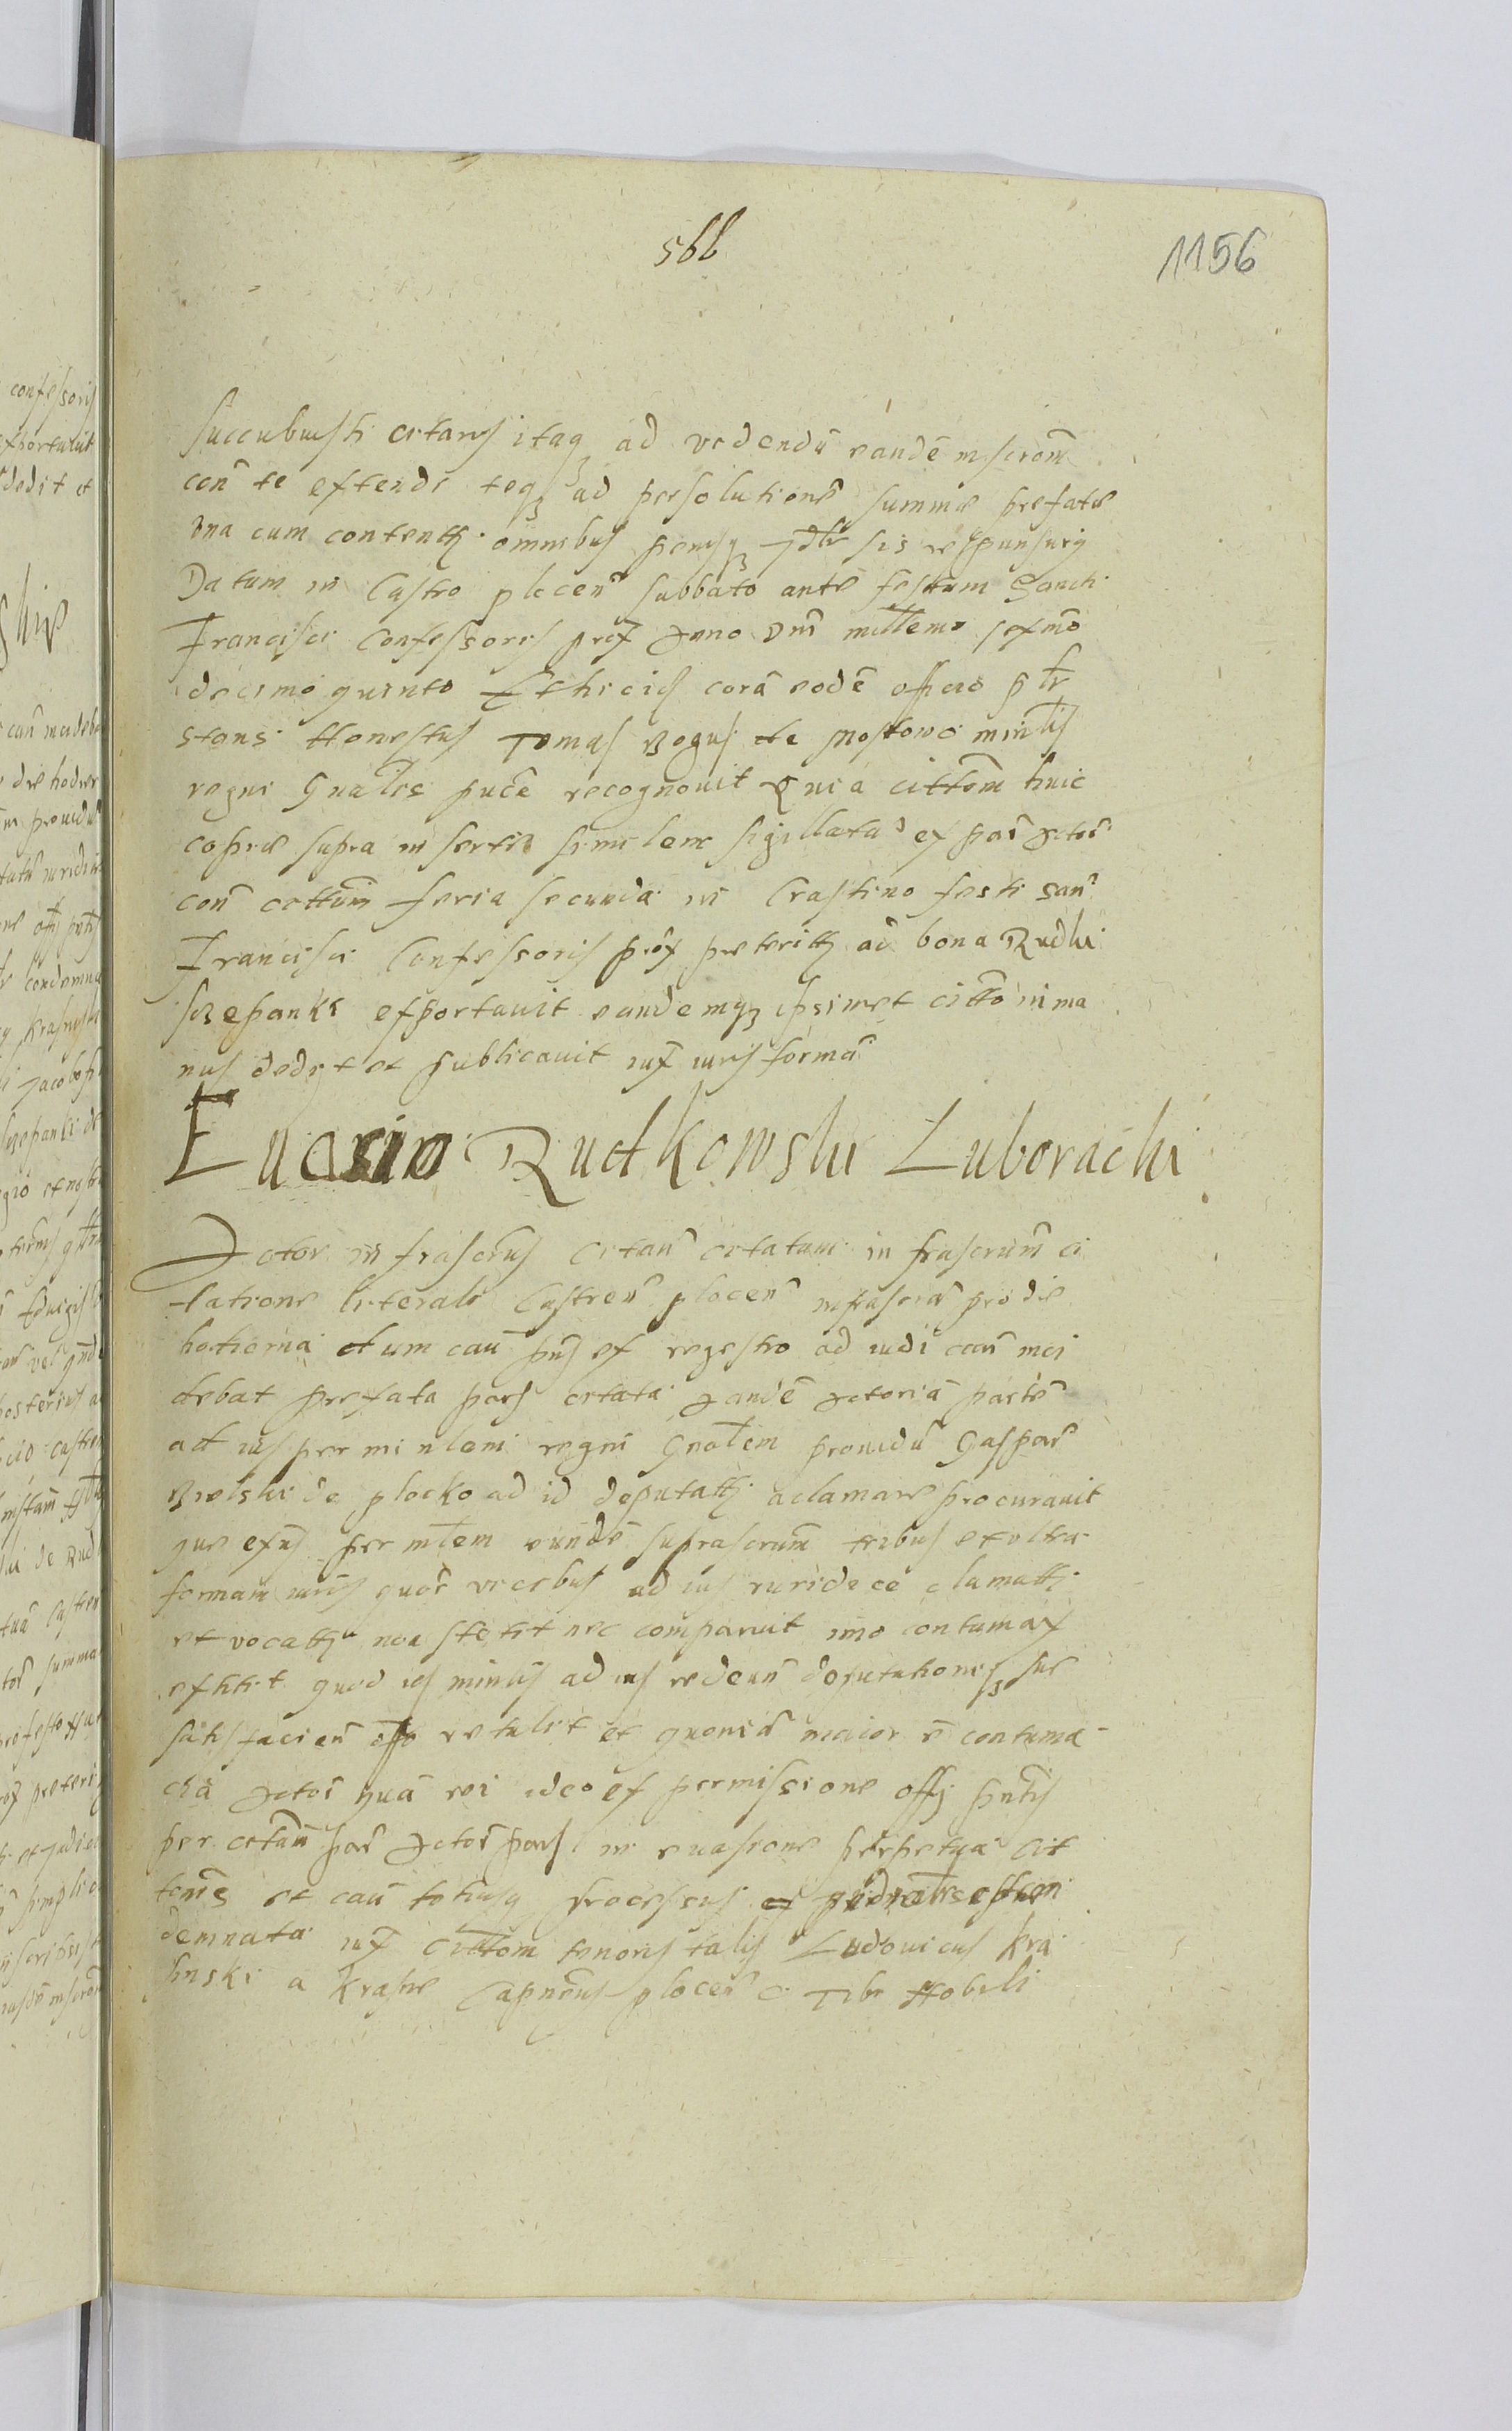 566
1156
succubuisti citaris itaq ad videndū eandē inscrom
con te extendi teq ad persolutionē summæ prefatæ
Vna cum contentis omnibus penisq sis responsurq
Datum in Castro plocen Sabbato ante festum Sancti
Francisci Confessoris prox Anno Dni millemo sexmo
decimo quinto Et hicis corā eodē officio psr
stans Honestus Tomas Bogus de Mostowo minlis
regni Gnalis pucē recognouit Quia cittom huic
copiæ supra insertæ similem sigillatā ex par Actor
con cittum feria secunda in Crastino festi San
Francisci Confessoris prox preteriti ad bona Rudki
szepanki exportauit eandemq ipsimet citto in ma
nus dedit et publicauit iux iuris formā
Euasio Rudkowski Luboracki
Actor infrascrus citan citatum infrascrum ci
tatione literali Castren plocen infrascrā pro die
hodierna dum cau pns ex regestro ad iudican inci
debat prefata pars citata Eandē Actoriā partē
ad ius per minlem regni Gnalem prouidū Gaspar
Bielski de plocko ad id deputatū aclamare procurauit
que exns per mlem eundē suprascrum tribus et vltra
formam iuris quor vicibus ad ius iuridice clamatt
et vocatt non stetit nec comparuit imo contumax
extitit quod is minlis ad ius rediens deputationisq sue
satisfacien offo retulit et quoniā maior ē contuma
cia Actor quā rei ideo ex permissione offi pntis
per citan par Actor pars in euasione perpetua cit
tonis et cau totiusq processus
demnata iux cittom tenoris talis Ludouicus Kra
sinski a Krasne Capneus plocen c Tibi Nobili